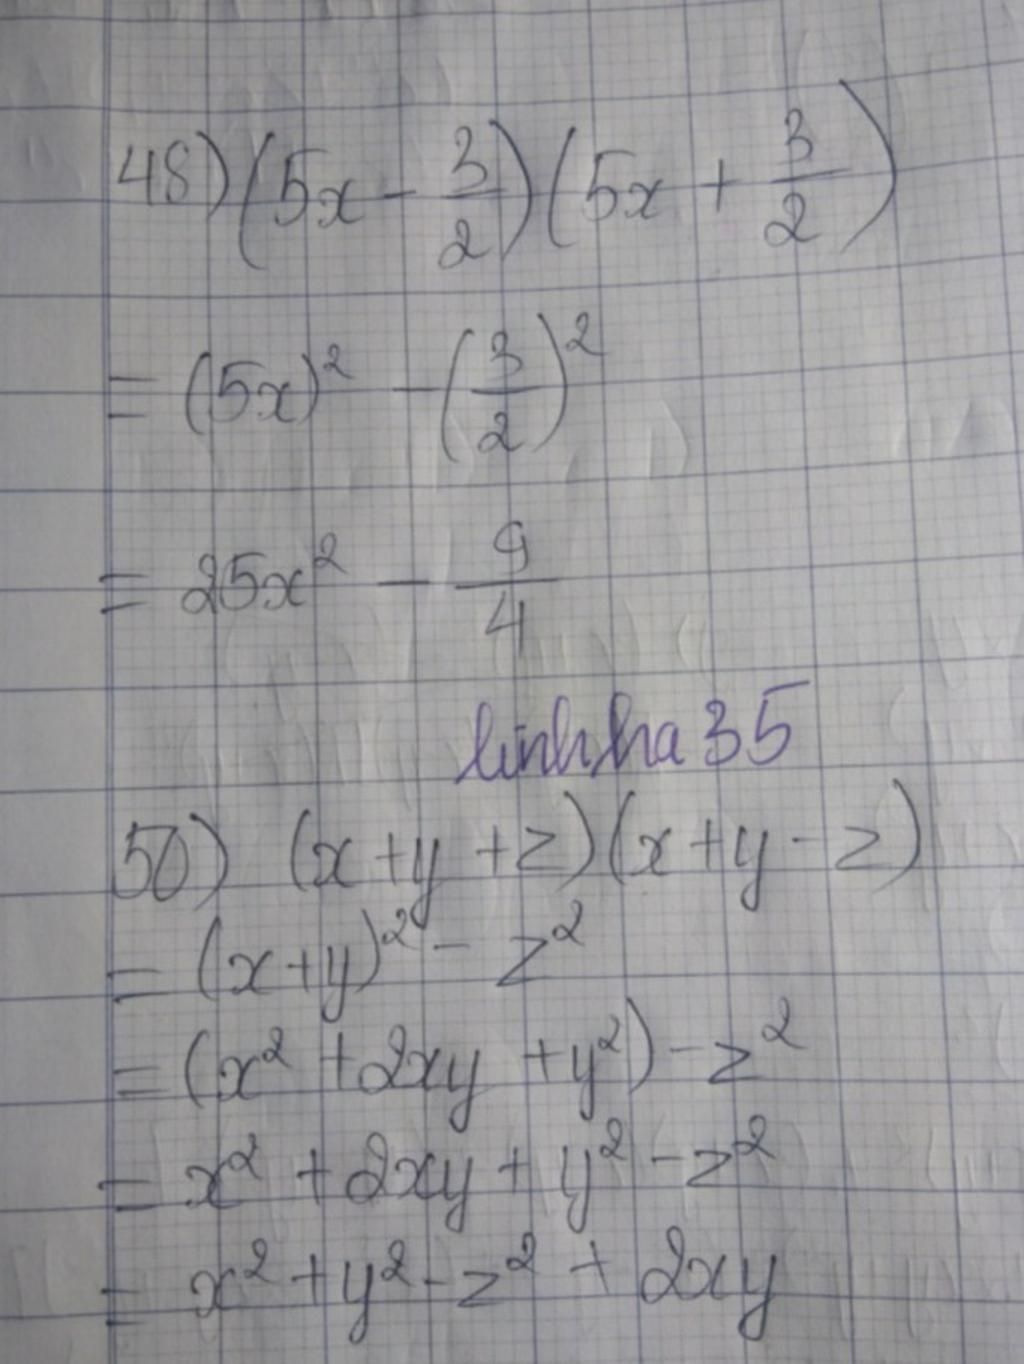 48) (5x - 3/2)(5x + 3/2)
= (5x)² - (3/2)²
= 25x² - 9/4
linhha35
50) (x + y + z)(x + y - z)
= (x + y)² - z²
= (x² + 2xy + y²) - z²
= x² + 2xy + y² - z²
= x² + y² - z² + 2xy